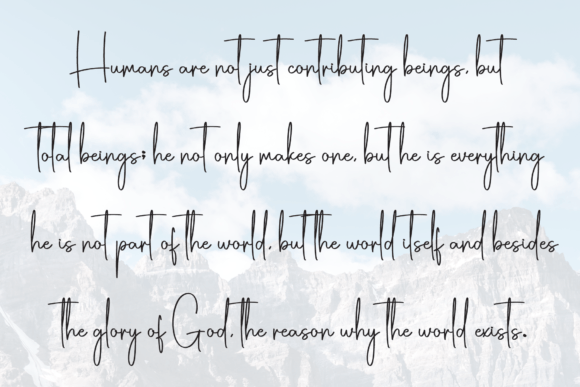 Humans are not just contributing beings, but
total beings; he not only makes one, but he is everything
he is not part of the world, but the world itself and besides
the glory of God, the reason why the world exists.